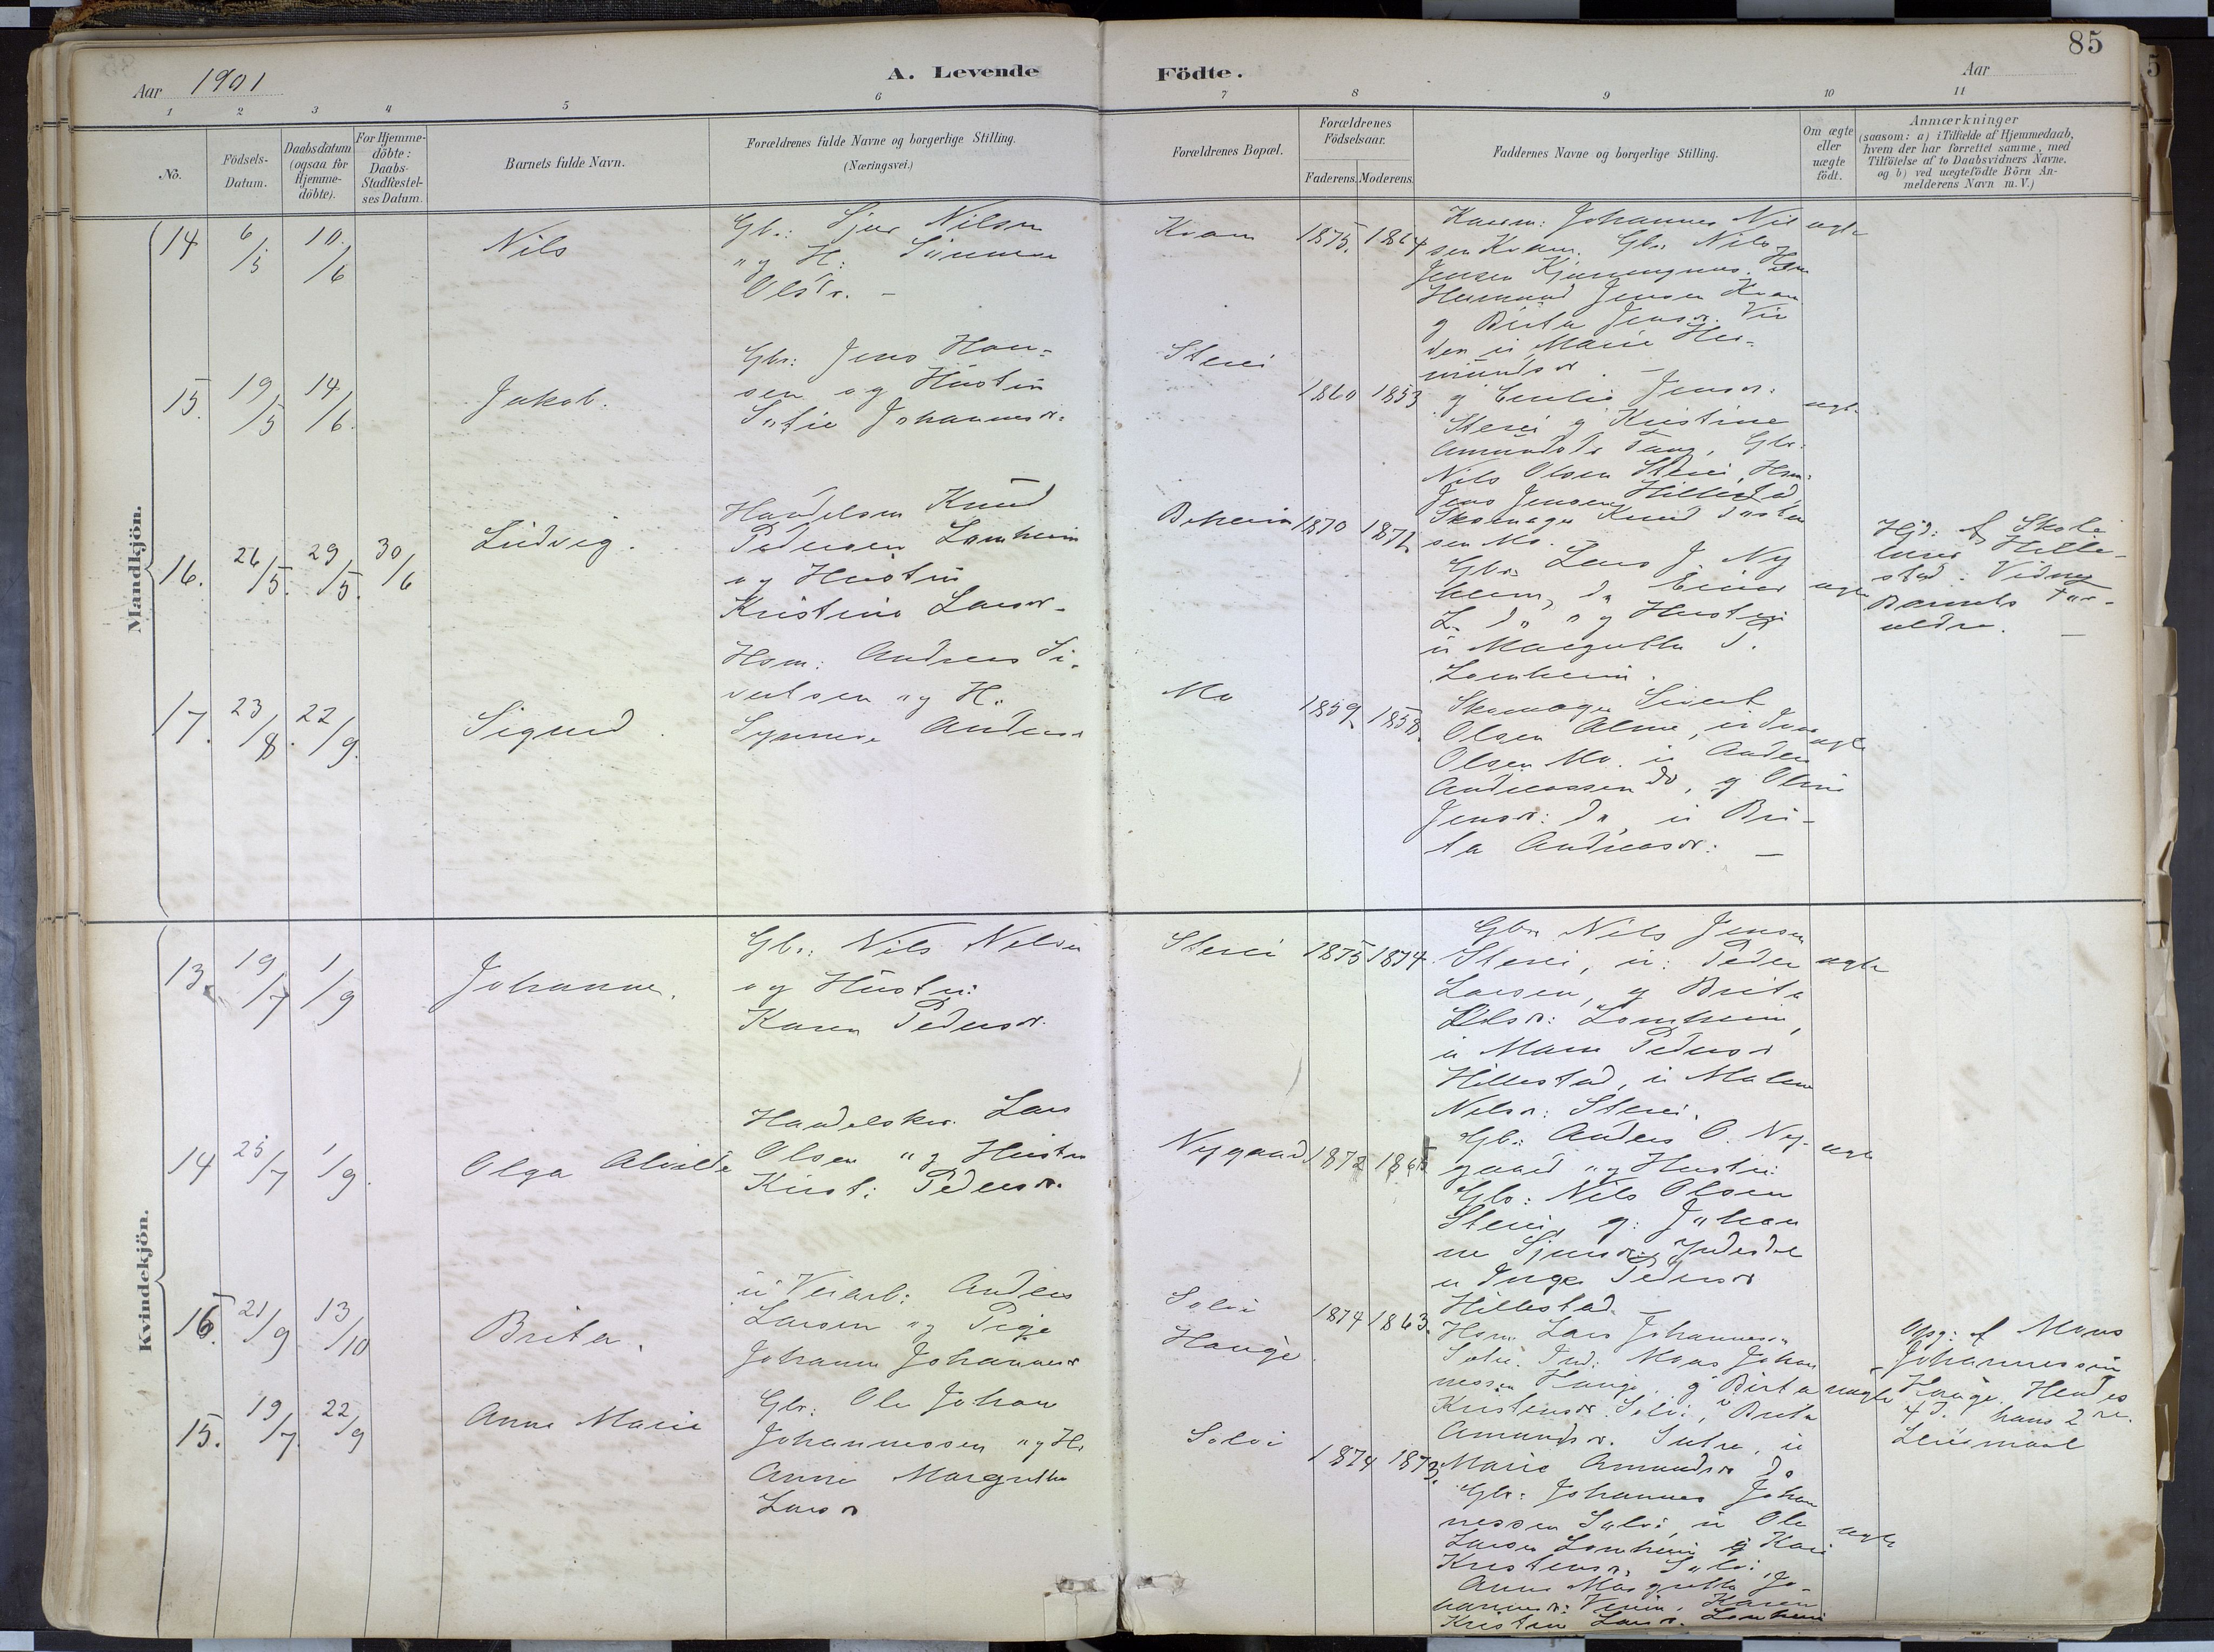 85
Aar 1901
A. Levende Födte.
Aar
1 2 3 4 5 6 7 8 9 10 11
No.
Födsels-Datum.
Daabsdatum (ogsaa for Hjemme-döbte).
For Hjemme-döbte: Daabs-Stadfæstel-ses Datum.
Barnets fulde Navn.
Forældrenes fulde Navne og borgerlige Stilling.
(Næringsvei.)
Forældrenes Bopæl.
Forældrenes Födselsaar.
Faderens. Moderens.
Faddernes Navne og borgerlige Stilling.
Om ægte eller uægte födt.
Anmærkninger
(saasom: a) i Tilfælde af Hjemmedaab,
hvem der har forrettet samme, med
Tilföielse af to Daabsvidners Navne.
og b) ved uægtefödte Börn An-
melderens Navn m. V.)
Mandkjön.
14 6/5 10/6 Nils
Gbr: Sjur Nilsen
og H:
Olsdr. -
Kvam 1875. 1864
Johannes Nil
sen Kvam. Gbr. Nils
Jensen
Hermund Jensen Kvam
g Brita Jensdr.
den u Marie Her-
mundsdr. -
ægte
15. 19/5 14/6. Jakob.
Gbr: Jens Han-
sen og Hustru
Johannesdr.
Sterei 1860 1853
g Jensdr.
Sterei g Kristine
Amundsdr Tang, Gbr:
Nils Olsen Sterei, Hsm:
Jens Jensen Hillestad
ægte
16. 26/5. 29/5. 30/6 Ludvig.
Handelsm Knud
Pedersen Lomheim
og Hustru
Kristine Larsdr.
1870 1872
Skomager Knud
sen Mo.
Gbr. Lars J. Ny
heim, do Einar
L. do og Hustru
u Margretha P.
Lomheim.
ægte
Hjd: af Skole
lærer Hille-
stad. Vidner
Barnets For-
ældre. -
17. 23/8. 22/9. Sigurd.
Hsm: Andreas Si-
vertsen og H.
Synneve Andersdr
Mo 1859 1858.
Skomager Sivert
Olsen Alme, u Jens
Olsen Mo. u Anders
Andreassen do, g Oline
Jensdr: do, u Bri-
ta Andreasdr: -
ægte
Kvindekjön.
13. 19/7 1/9 Johanne.
Gbr: Nils Nilsen
og Hustru
Karen Pedersdr.
Sterei 1875 1874.
Gbr Nils Jensen
Sterei, u: Peder
Larsen, g Brita
Olsdr: Lomheim,
u Maren Pedersdr
Hillestad, u Malene
Nilsdr: Sterei.
ægte
14 25/7 1/9. Olga Alvilde
Handelskar. Lars
Olsen og Hustru
Kirsti Pedersdr.
Nygaard 1872
Gb: Anders O. Ny-
gaard og Hustru
Gbr: Nils Olsen
Sterei g: Johan
ne Sjursdr:
u Inger Pedersdr
Hillestad. -
ægte
16. 21/9 13/10 Brita.
u Veiarb: Anders
Larsen og Pige
Johanne Johannesdr
Solvi
Hauge.
1874 1863.
Hsm. Lars Johannessen
Solvi. Ind: Mons Johan
nessen Hauge. g Brita
Kristensdr. Solvi, u Brita
Amundsdr. u
Marie Amundsdr do
uægte
Opg: af Mons
Johannessen
Hauge. Hendes
4d. hans 2 re.
Leiermaal
15. 19/7. 22/9 Anna Marie
Gbr: Ole Johan
Johannessen og H.
Anna Margretha
Larsdr
Solvi 1874 1873.
Gbr: Johannes Johan
nessen Solvi, u Ole
Larsen Lomheim g Kari
Kristensdr. Solvi,
Anna Margretha Jo-
hannesdr: Karen
Kristine Larsdr. Lomheim
ægte